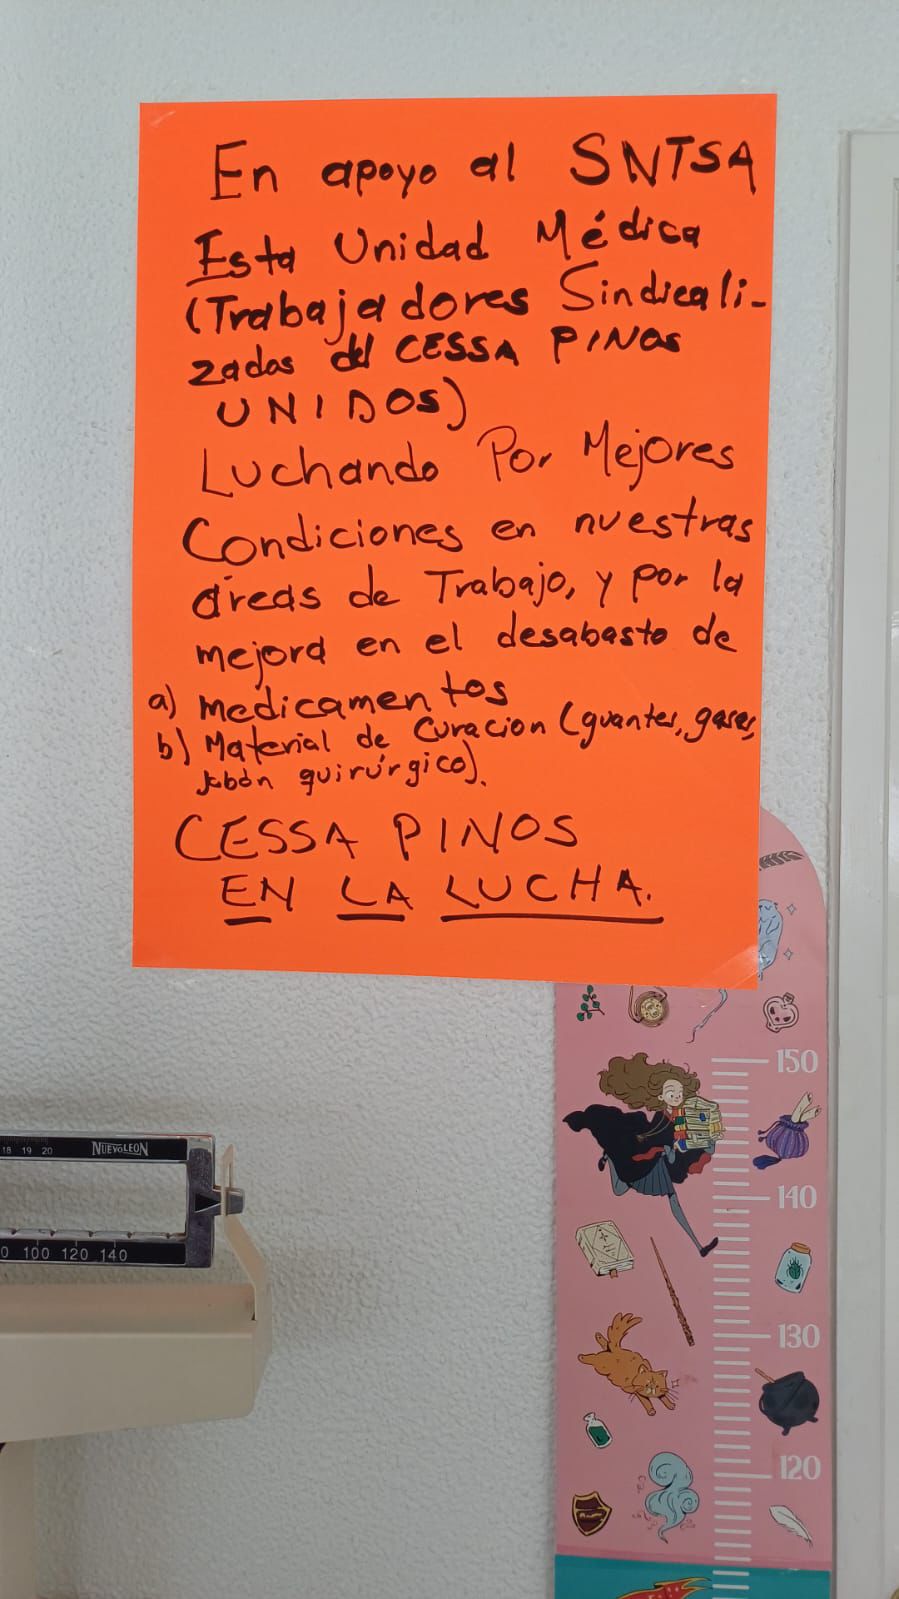 En apoyo al SNTSA
Esta Unidad Médica
(Trabajadores Sindicali-
zados del CESSA PINOS
UNIDOS)
Luchando Por Mejores
Condiciones en nuestras
áreas de Trabajo, y por la
mejora en el desabasto de
a) medicamentos
b) Material de Curacion (guantes, gasas,
jabón quirúrgico).
CESSA PINOS
EN LA LUCHA.
150
140
130
120
18 19 20 NUEVO LEON
100 120 140